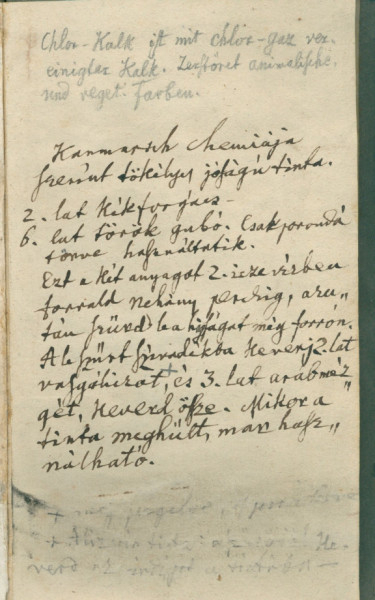 Chlor-Kalk ist mit chlor-gaz ver-
einigtes Kalk. Zerstöret animalische
und veget. Farben.
Karmarsch chemiája
szerint tökélyes jóságú tinta.
2. lat kékforgács
6. lat török gubó. Csak porondá
törve használtatik.
Ezt a két anyagot 2. icze vízben
forrald néhány perczig, azu„
tán szűrd le a híjágat még forrón.
A leszűrt szivadékba keverj 2. lat
vasgáliczot, és 3. lat arabméz„
gét, keverd össze. Mikor a
tinta meghűlt, már hasz„
nálható.